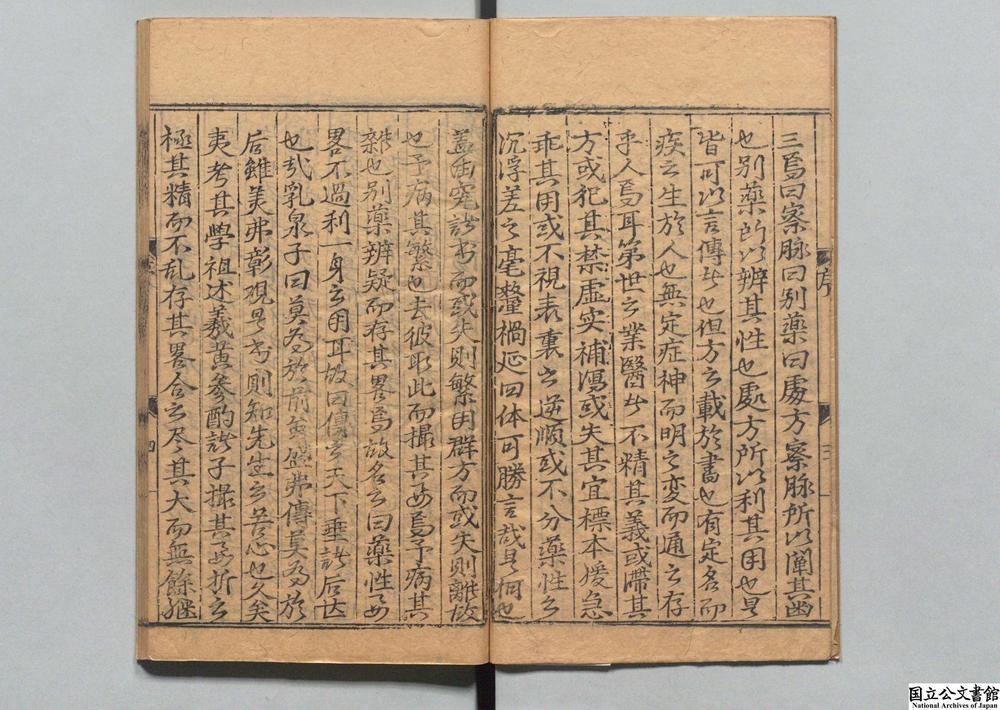 三焉曰察脉曰别藥曰處方察脉所以闡其幽
也别藥所以辨其性也處方所以利其用也是
皆可以言傳者也但方之載於書也有定名而
疾之生於人也無定症神而明之変而通之存
乎人焉耳第世之業醫者不精其義或滯其
方或犯其禁虚实補瀉或失其宜標本緩急
乖其用或不視表裏之逆順或不分藥性之
沉浮差之毫釐禍延四体可勝言哉是何也
盖研究諸书而或失則繁用群方而或失則離故
也予病其繁也去彼取此而撮其要焉予病其
雜也别藥辨疑而存其畧焉故名之曰藥性要
畧不過利一身之用耳故曰傳之天下垂諸后世
也哉乳泉子曰莫為於前虽盛弗傳莫為於
后雖美弗彰观是书則知先生之苦心也久矣
夷考其學祖述羲黄參酌諸子撮其要折之
極其精而不乱存其畧合之尽其大而無餘繼
序
三
四
国立公文書館
National Archives of Japan